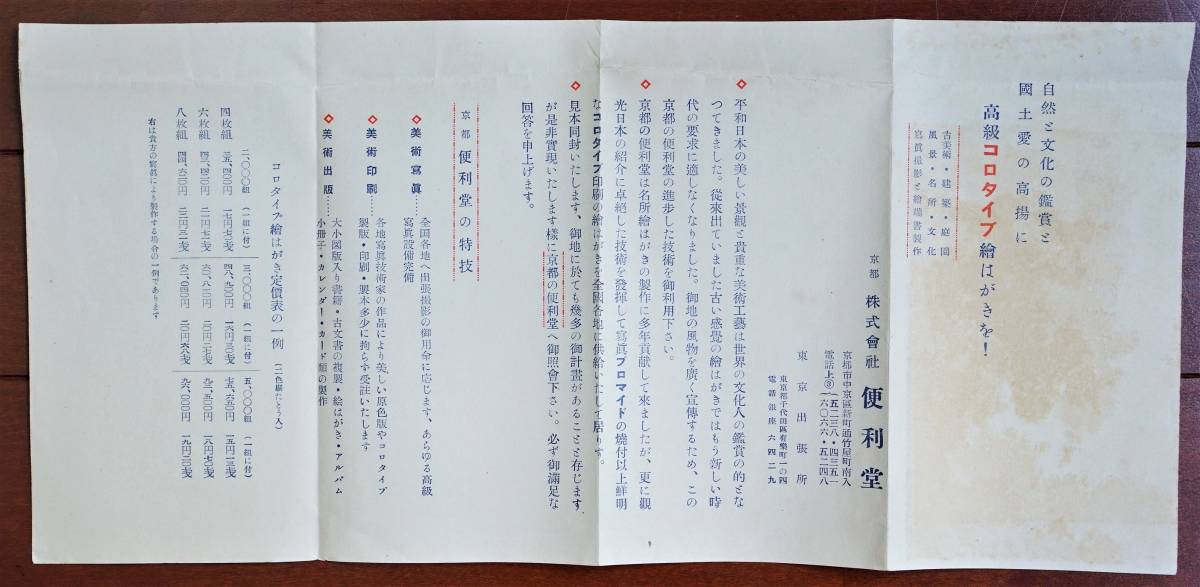 自然と文化の鑑賞と
國土愛の高揚に
高級コロタイプ繪はがきを！
古美術・建築・庭園
風景・名所・文化
寫眞撮影と繪端書製作
京都 株式會社 便利堂
京都市中京區新町通竹屋町南入
電話上③（五二三八・四三五一
六〇六六・五二四八
東京出張所
東京都千代田區有樂町一の四
電話銀座六四二九
◇平和日本の美しい景觀と貴重な美術工藝は世界の文化人の鑑賞の的とな
つてきました。從來出ていました古い感覺の繪はがきではもう新しい時
代の要求に適しなくなりました。御地の風物を廣く宣傳するため、この
京都の便利堂の進步した技術を御利用下さい。
◇京都の便利堂は名所繪はがきの製作に多年貢献して來ましたが、更に觀
光日本の紹介に卓絕した技術を發揮して寫眞ブロマイドの燒付以上鮮明
なコロタイプ印刷の繪はがきを全國各地に供給いたして居ります。
◇見本同封いたします、御地に於ても幾多の御計畫があることと存じます
が是非實現いたします樣に京都の便利堂へ御照會下さい。必ず御滿足な
回答を申上げます。
京都 便利堂の特技
◇美術寫眞……
全国各地へ出張撮影の御用命に応じます、あらゆる高級
寫眞設備完備
◇美術印刷……
各地寫眞技術家の作品により美しい原色版やコロタイプ
製版・印刷・製本多少に拘らず受註いたします
◇美術出版……
大小図版入り書籍・古文書の複製・絵はがき・アルバム
小冊子・カレンダー・カード類の製作
コロタイプ繪はがき定價表の一例（二色刷たとう入）
二、〇〇〇組 （一組に付） 三、〇〇〇組 （一組に付） 五、〇〇〇組 （一組に付）
四枚組
六枚組
八枚組
右は貴方の寫眞により製作する場合の一例であります